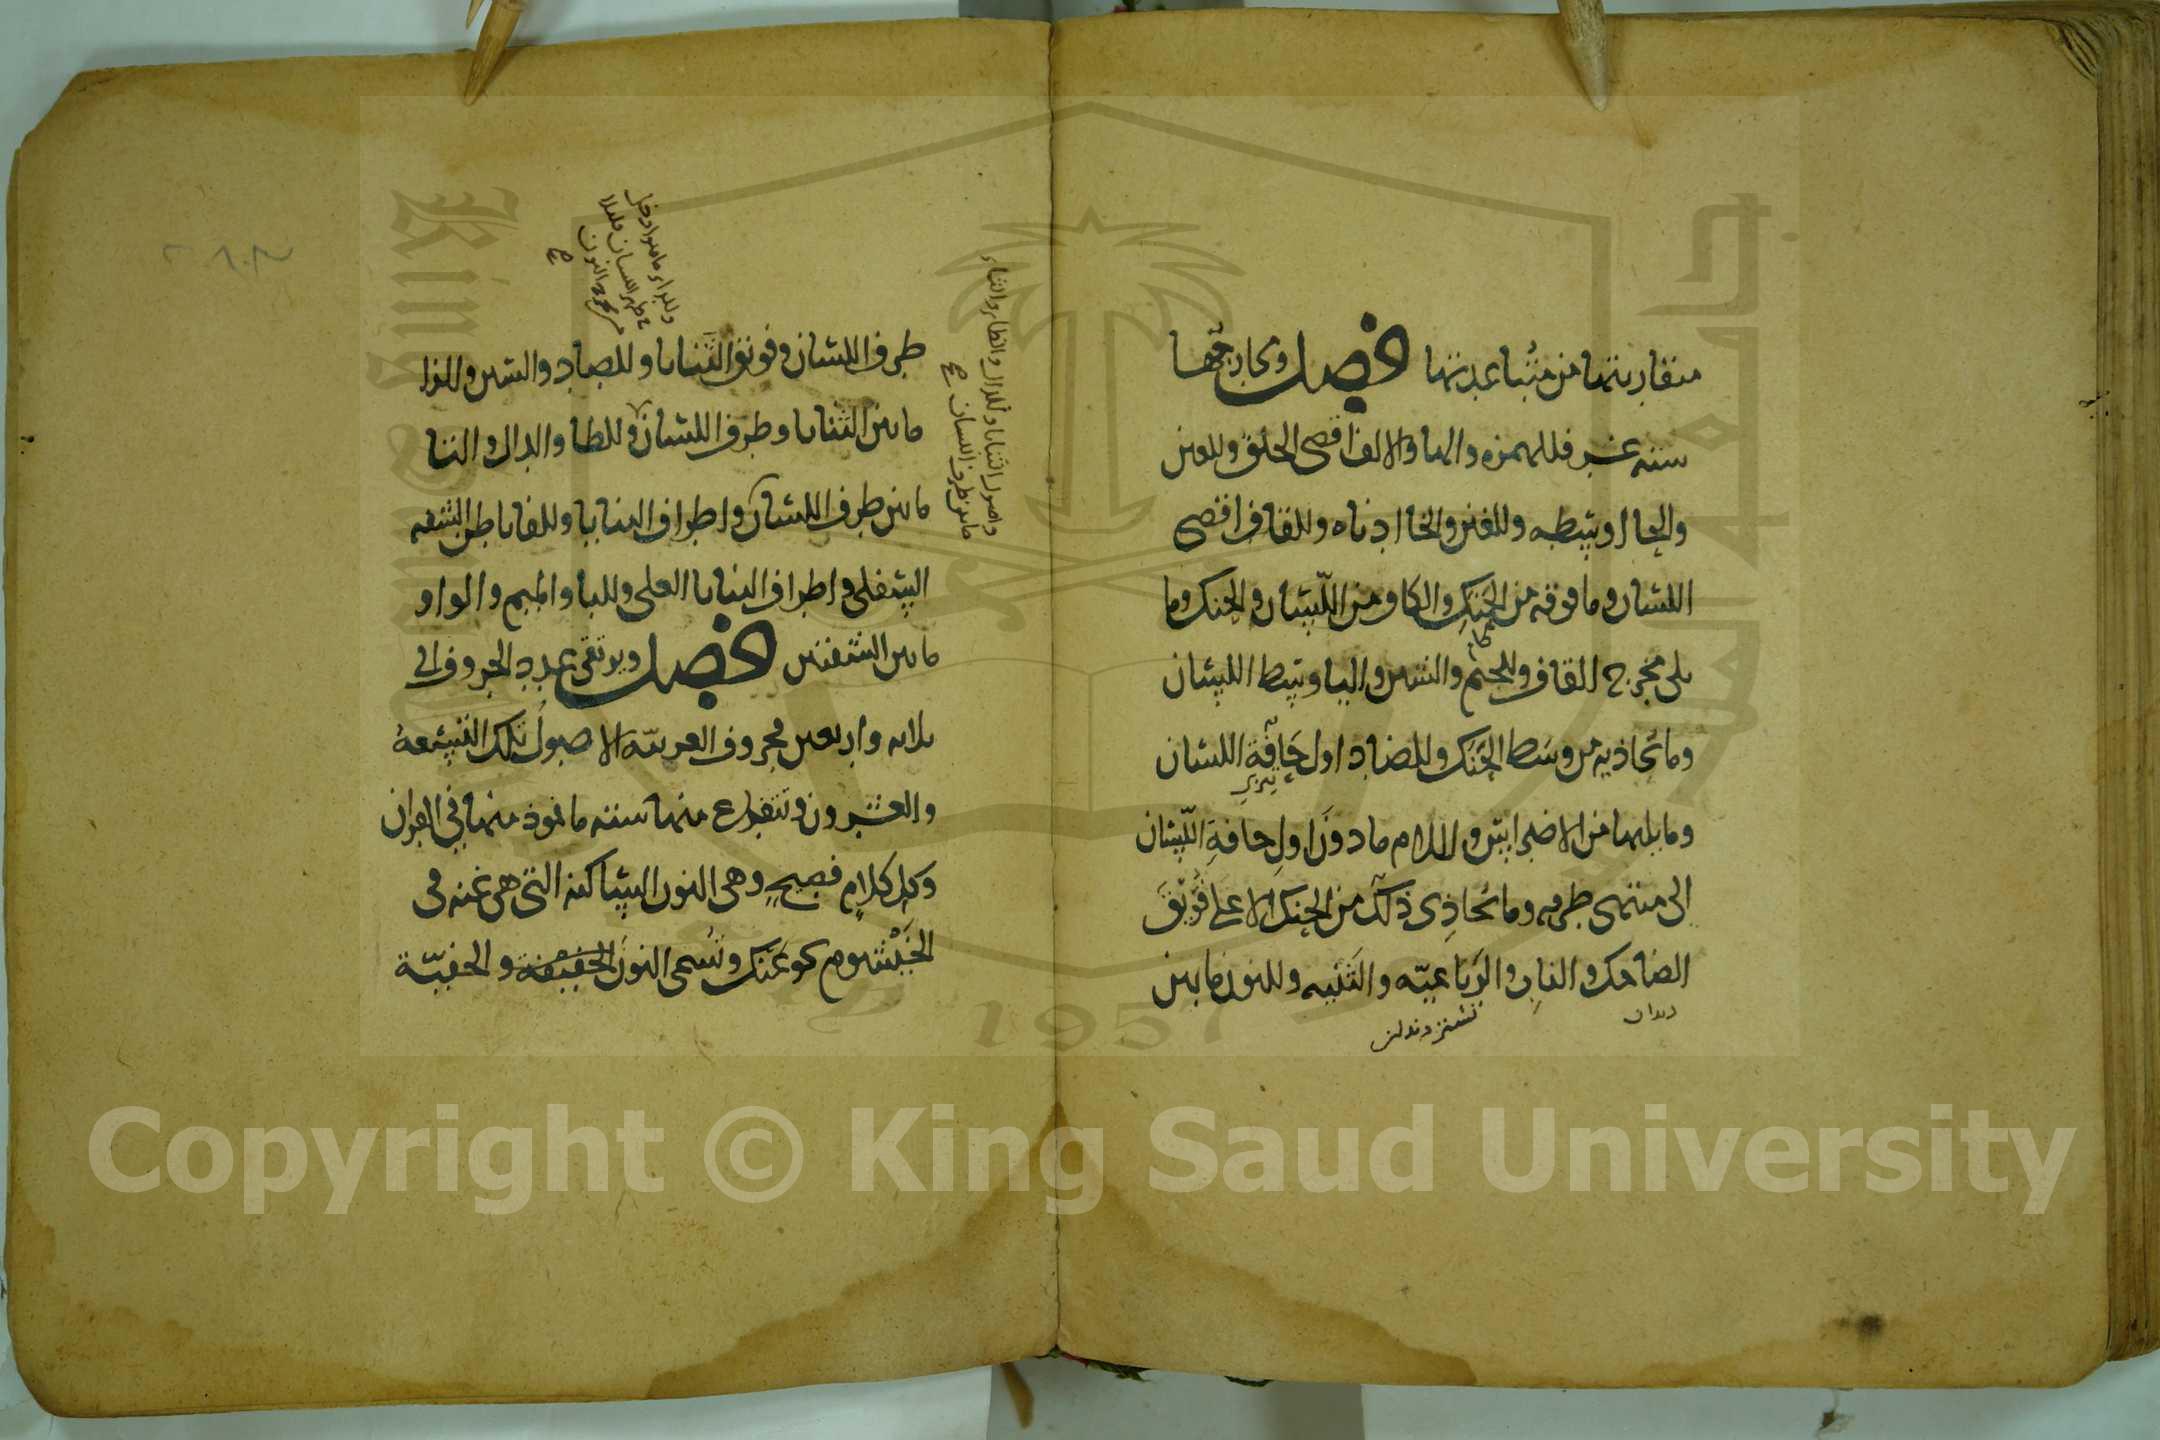 متقاربتها من متباعدتها فصل ومخارجها
ستة عشر فللهمزة والها والالف اقصى الحلق وللعين
والحا اوسطه وللغين والخا ادناه وللقاف اقصى
اللسان وما فوقه من الحنك والكاف من اللسان والحنك وما
يلى مخرج القاف وللجيم والشين واليا وسط اللسان
وما يحاذيه من وسط الحنك وللضاد اول حَافَةِ اللسان
وما يليها من الاضراس وللام ما دونَ اولِ حافةِ اللّسان
الى منتهى طرفه وما يُحاذِى ذلك من الحنك الاعلى فُوَيْقَ
الضاحك والنابِ والرَباعيّة والثَنيه وللنون ما بين
دندان
طرف اللسان وفويق الثنايا وللصاد والسين والزا
ما بين الثنايا وطرف اللسان وللطا والدال والتا
ما بين طرف اللسان واطراف الثنايا وللفا باطن الشفه
السفلى واطراف الثنايا العلى وللبا والميم والواو
ما بين الشفتين فصل ويرتقى عدد الحروف الى
ثلاثه واربعين فحروف العربيّة الاصول تلك التسعة
والعشرون ويتفرع منها ستة ماخوذ منها في القران
وكل كلامٍ فصيحٍ وهى النون الساكنه التى هى غنه فى
الخَيْشوم نحو عَنك وتُسمى النونَ الخفيْفة والخفيّة
وللراء ما هو ادخل
فى ظهر اللسان قليلا
من مخرج النون
واصول الثنايا وللذال والظاء والثاء
ما بين طرف اللسان
Copyright © King Saud University
1957